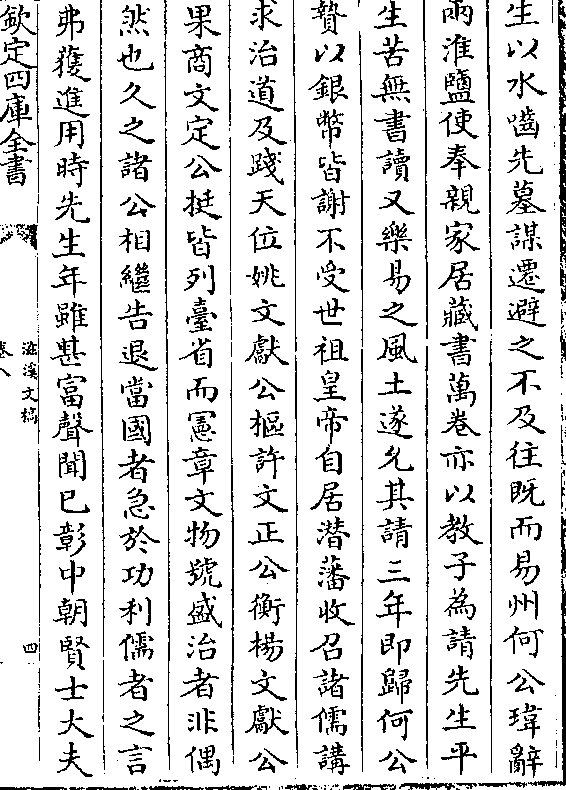 生以水嚙先墓謀遷避之不及往既而易州何公瑋辭
兩淮鹽使奉親家居藏書萬卷亦以教子為請先生平
生苦無書讀又樂易之風土遂允其請三年即歸何公
贄以銀幣皆謝不受世祖皇帝自居潜藩收召諸儒講
求治道及踐天位姚文獻公樞許文正公衡楊文獻公
果商文定公挺皆列臺省而憲章文物號盛治者非偶
然也久之諸公相繼告退當國者急於功利儒者之言
弗獲進用時先生年雖甚富聲聞已彰中朝賢士大夫
欽定四庫全書
滋溪文稿
卷八
四